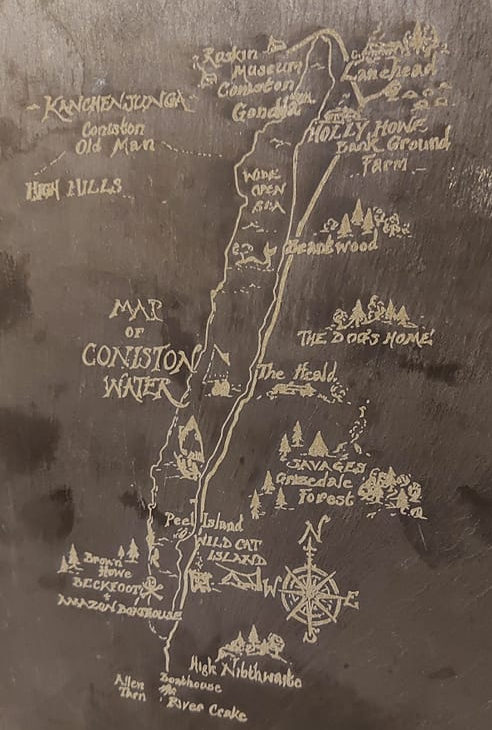 Ruskin
Museum
Coniston
Gondola
Lanehead
KANCHENJUNGA
Coniston
Old Man
HIGH HILLS
HOLLY HOWE
Bank Ground
Farm
WIDE
OPEN
SEA
Brantwood
THE DOG'S HOME
MAP
OF
CONISTON
WATER
The Heald
SAVAGES
Grizedale
Forest
Peel Island
WILD CAT
ISLAND
N
W
E
Brown
Howe
BECKFOOT
AMAZON BOATHOUSE
High Nibthwaite
Allen
Tarn
Boathouse
River Crake